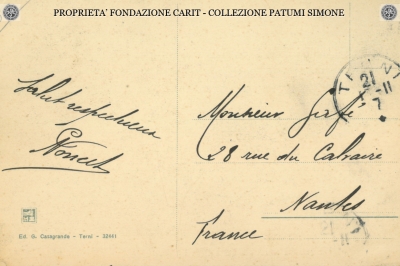 PROPRIETA' FONDAZIONE CARIT - COLLEZIONE PATUMI SIMONE
Salut respectueux
Monsieur
28 rue du Calvaire
Nantes
France
21
11
7
Ed. G. Casagrande - Terni - 32441